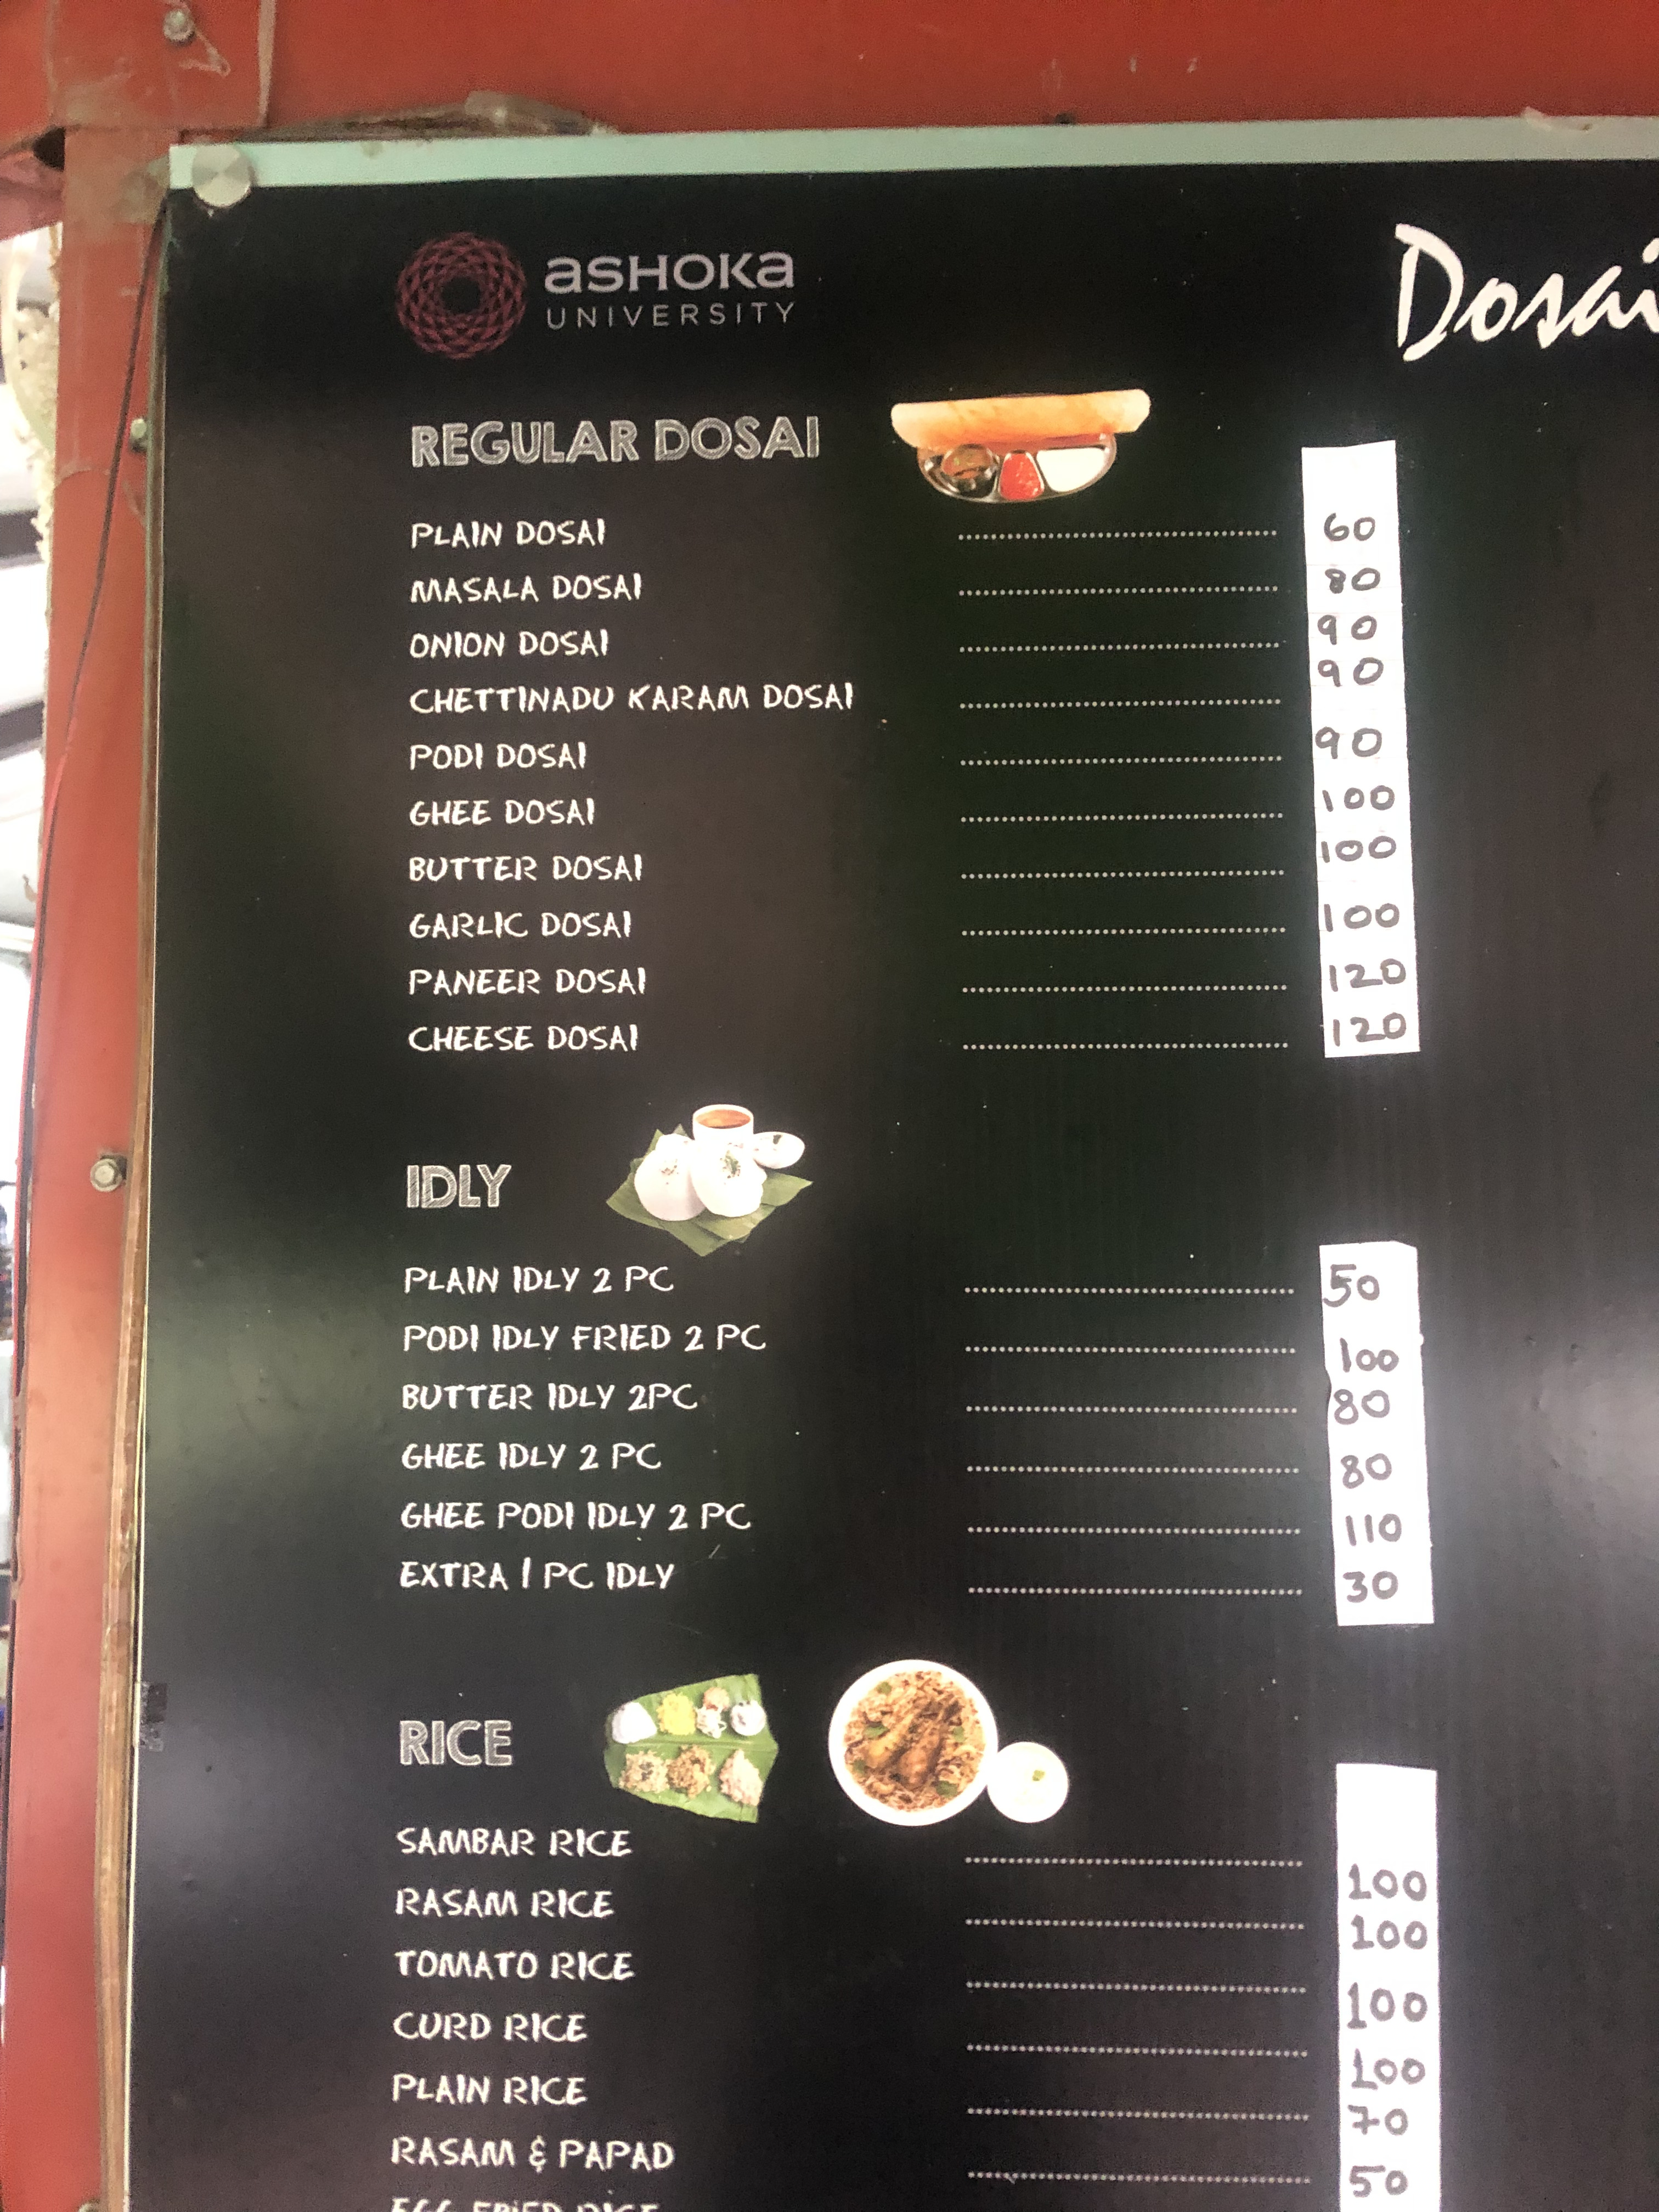 ASHOKA
UNIVERSITY
Dosai
REGULAR DOSAI
PLAIN DOSAI 60
MASALA DOSAI 80
ONION DOSAI 90
CHETTINADU KARAM DOSAI 90
PODI DOSAI 90
GHEE DOSAI 100
BUTTER DOSAI 100
GARLIC DOSAI 100
PANEER DOSAI 120
CHEESE DOSAI 120
IDLY
PLAIN IDLY 2 PC 50
PODI IDLY FRIED 2 PC 100
BUTTER IDLY 2PC 80
GHEE IDLY 2 PC 80
GHEE PODI IDLY 2 PC 110
EXTRA 1 PC IDLY 30
RICE
SAMBAR RICE 100
RASAM RICE 100
TOMATO RICE 100
CURD RICE 100
PLAIN RICE 70
RASAM & PAPAD 50
EGG FRIED RICE